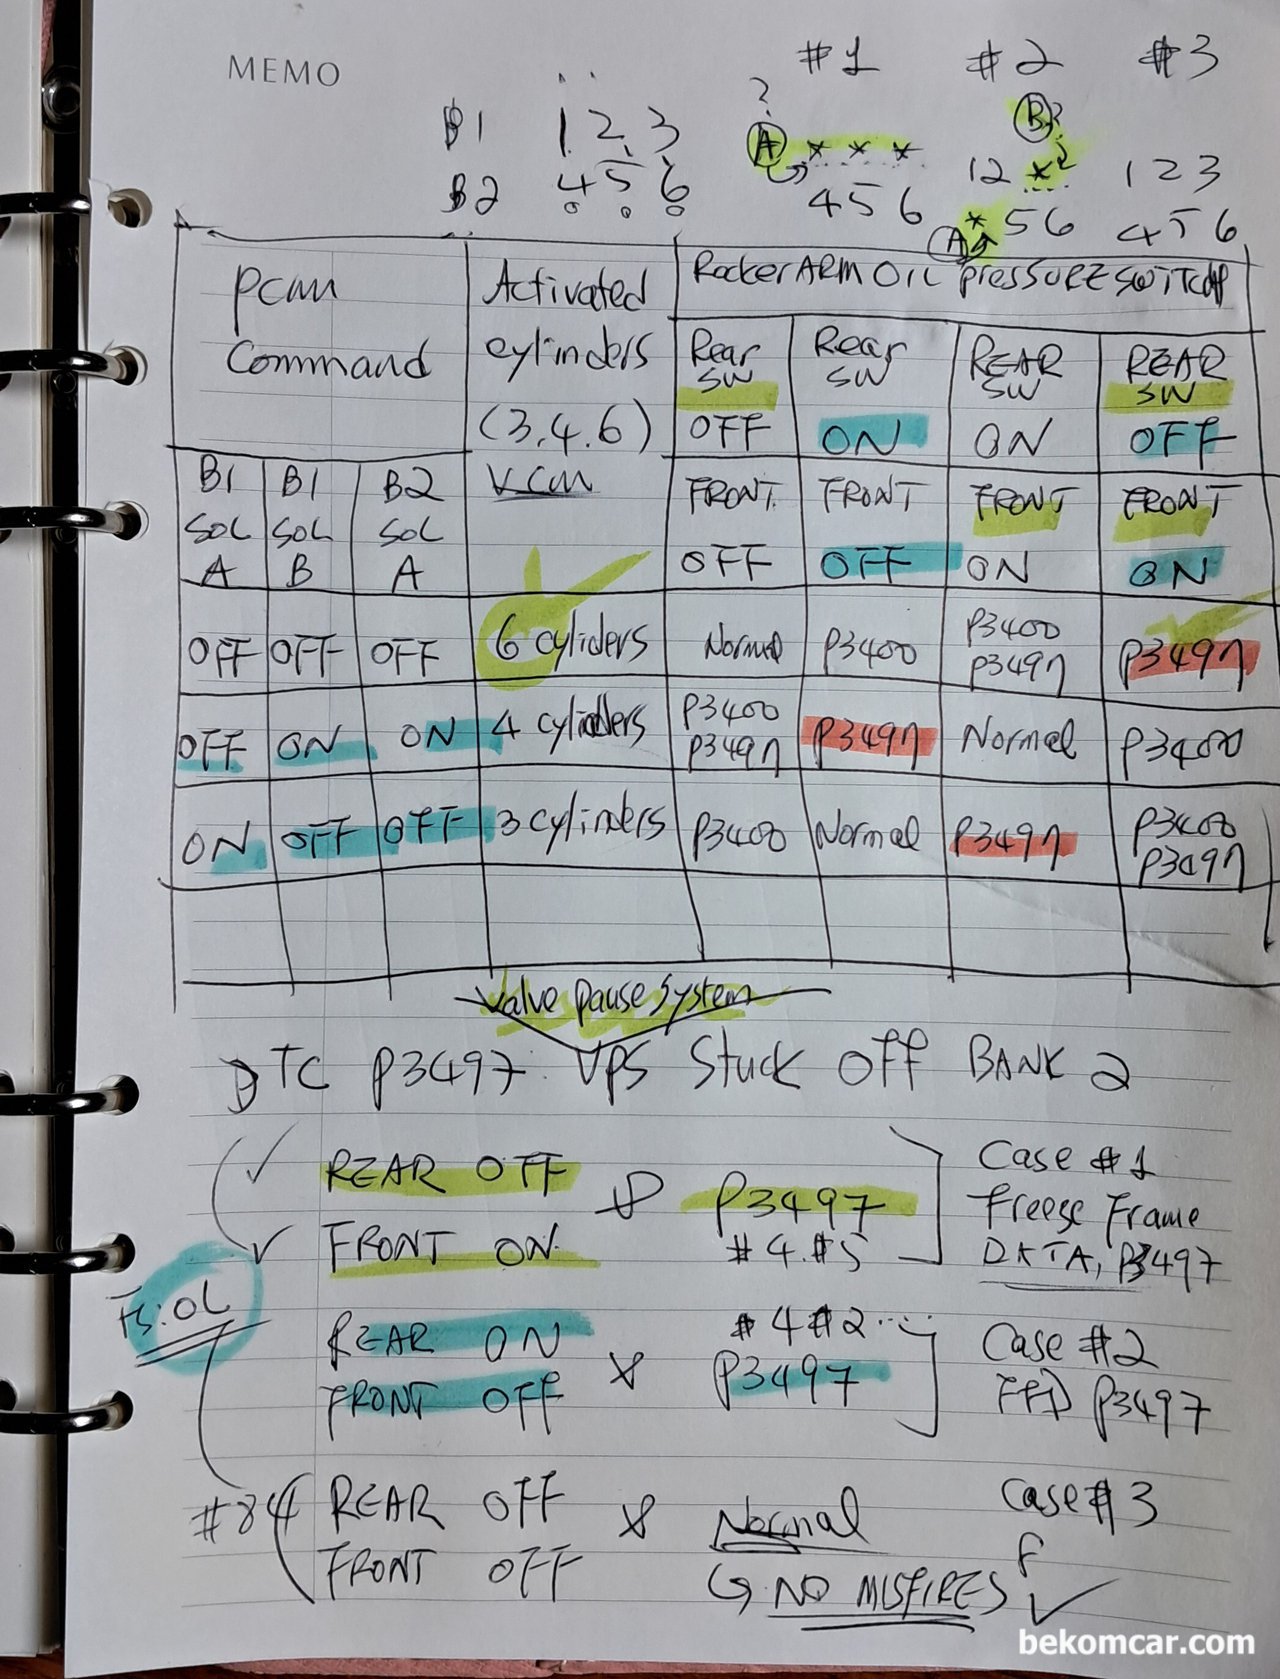 MEMO
#1 #2 #3
B1 1 2 3
? A * * *
B?
12 * 2
1 2 3
B2 4 5 6
4 5 6
* 5 6
A
4 5 6
PCM
Command
Activated
cylinders
(3.4.6)
VCM
Rocker ARM OIL PRESSURE SWITCH
Rear
SW
OFF
Rear
SW
ON
REAR
SW
ON
REAR
SW
OFF
B1
SOL
A
B1
SOL
B
B2
SOL
A
FRONT
OFF
FRONT
OFF
FRONT
ON
FRONT
ON
OFF OFF OFF 6 cyliders Normal P3400 P3400 P3497 P3497
OFF ON ON 4 cylinders P3400 P3497 P3497 Normal P3400
ON OFF OFF 3 cylinders P3400 Normal P3497 P3400 P3497
Valve Pause System
DTC P3497: VPS Stuck OFF BANK 2
REAR OFF
FRONT ON
& P3497
#4.#5
Case #1
Freeze Frame
DATA, P3497
Ts:OL
REAR ON
FRONT OFF
& #4#2...
P3497
Case #2
FFD P3497
#84
REAR OFF
FRONT OFF
& Normal
NO MISFIRES
Case #3
bekomcar.com